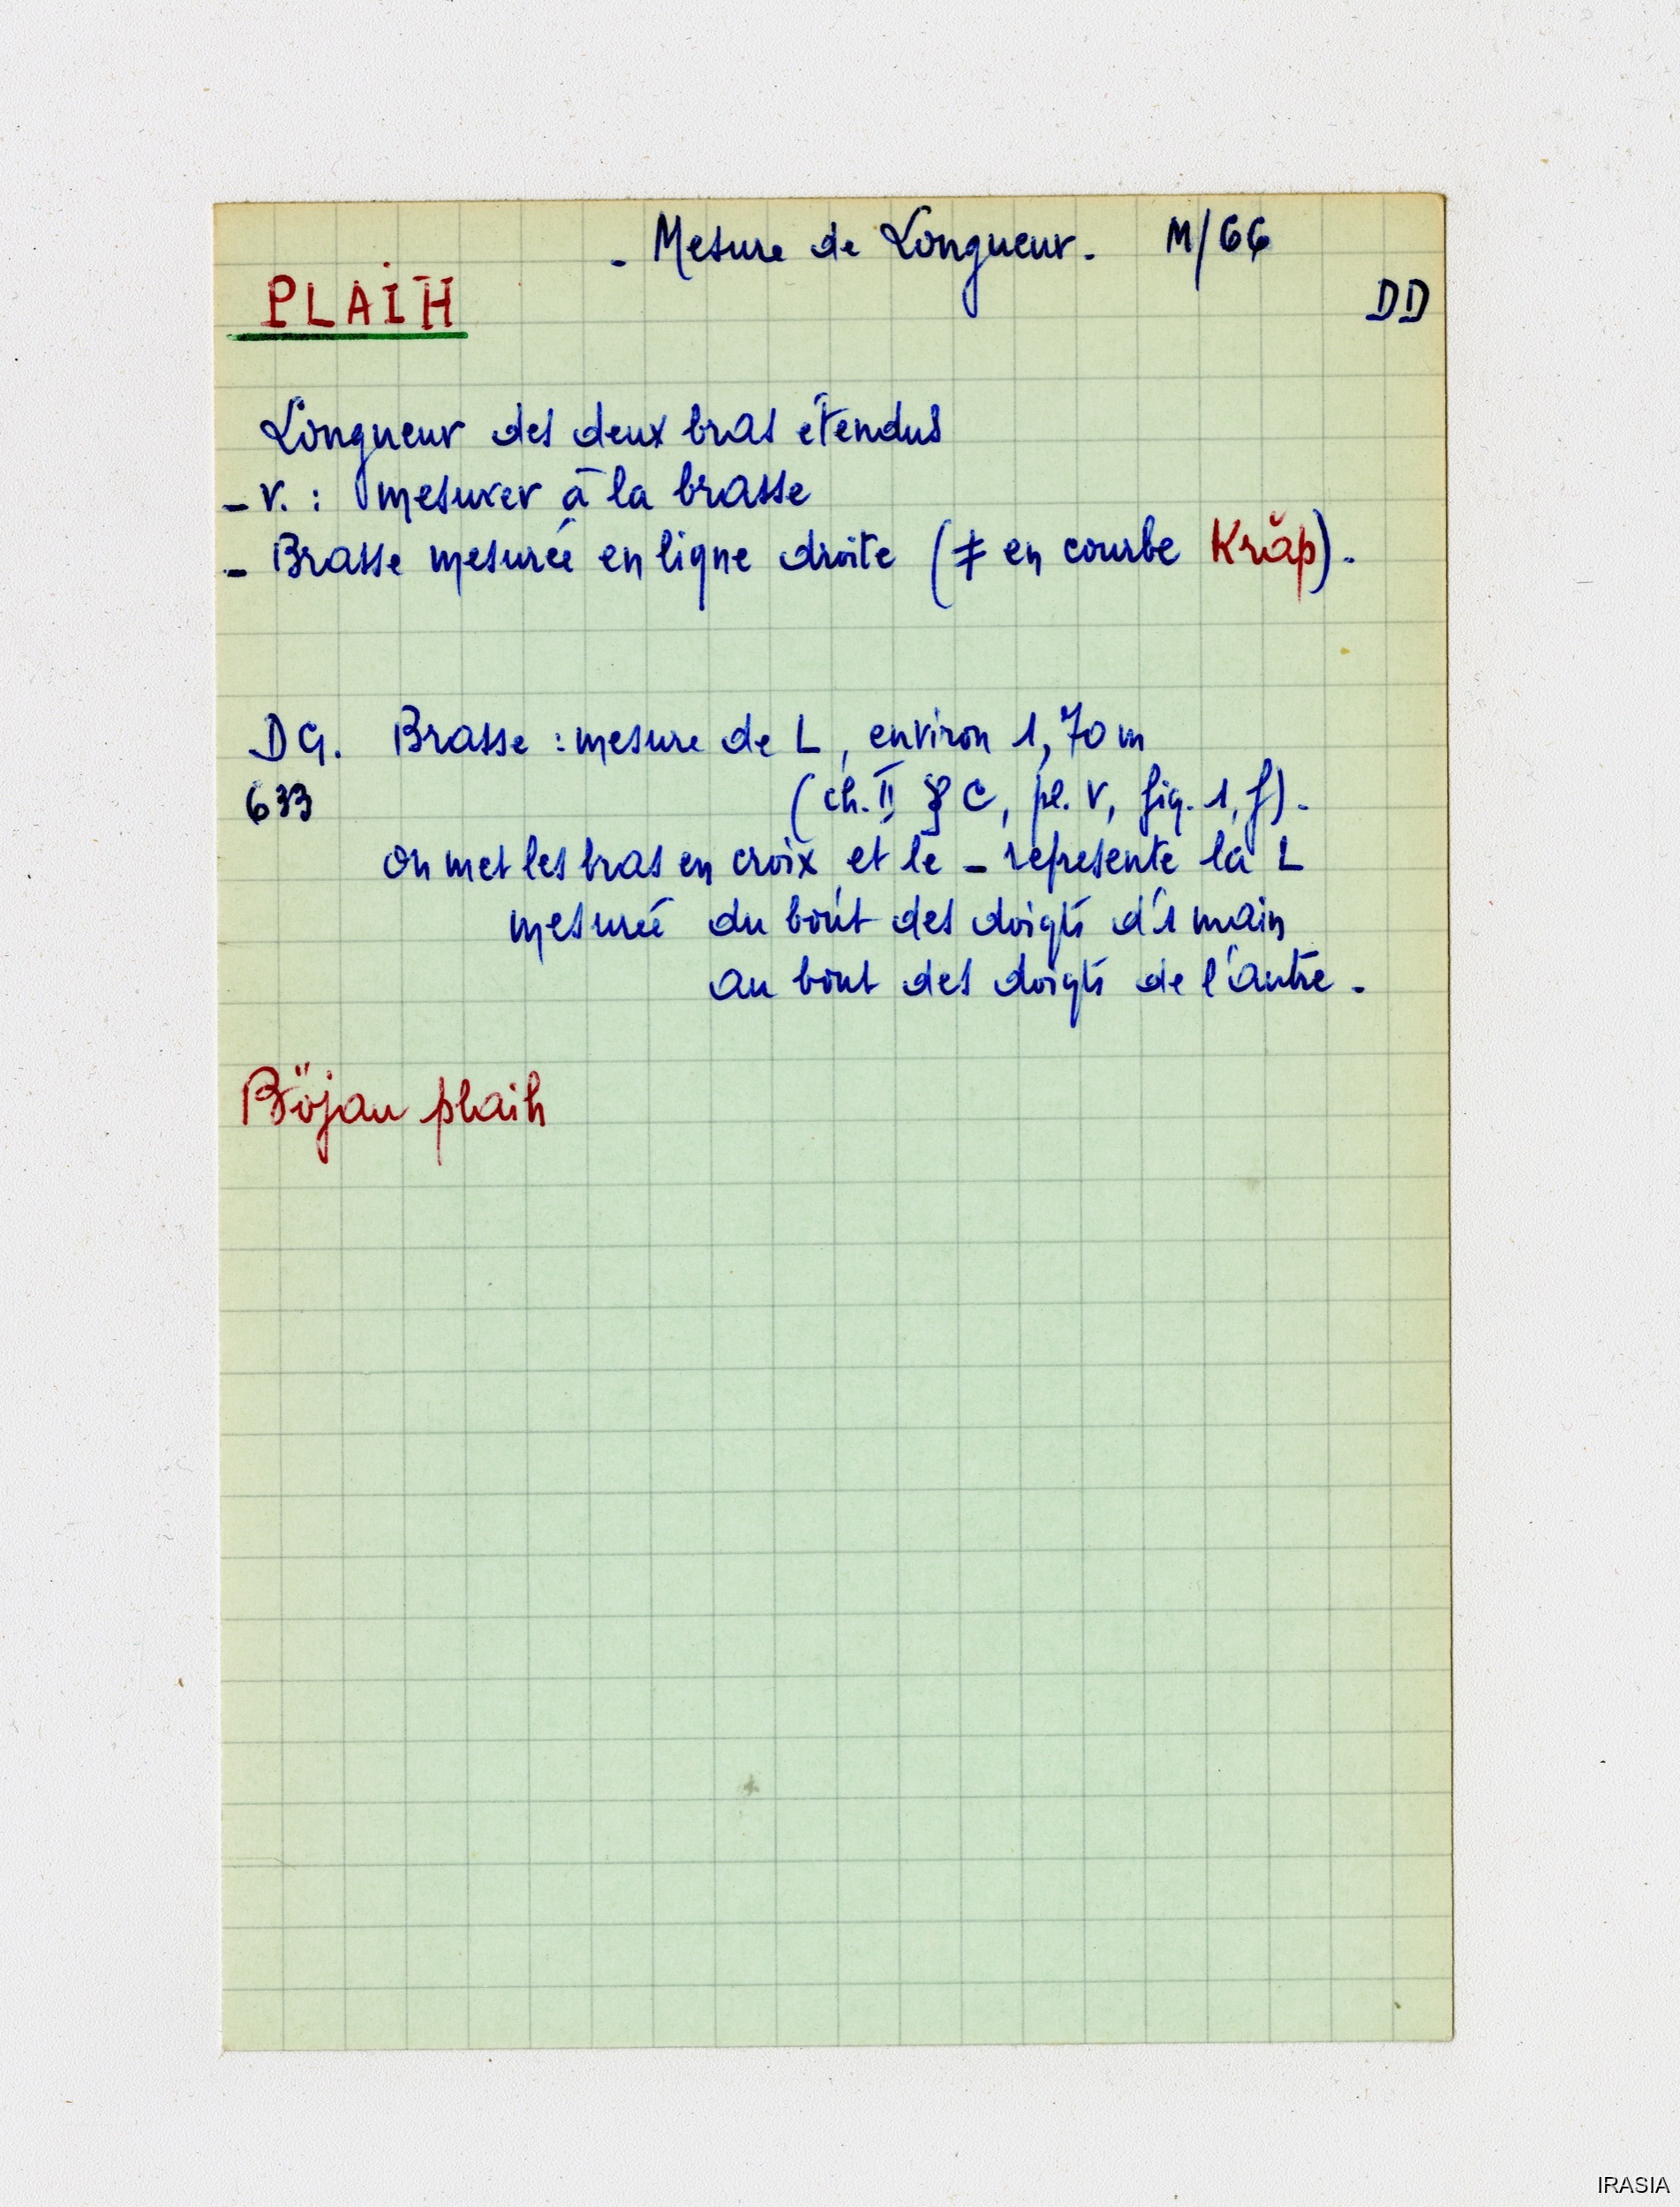 - Mesure de Longueur. M/66
PLAIH
DD
Longueur des deux bras étendus
- v. : mesurer à la brasse
- Brasse mesurée en ligne droite (≠ en courbe Krăp).
DG. Brasse : mesure de L, environ 1,70 m
633 (ch. II § C, pl. V, fig. 1, f).
On met les bras en croix et le - représente la L
mesurée du bout des doigts d'1 main
au bout des doigts de l'autre.
Böjau plaih
IRASIA